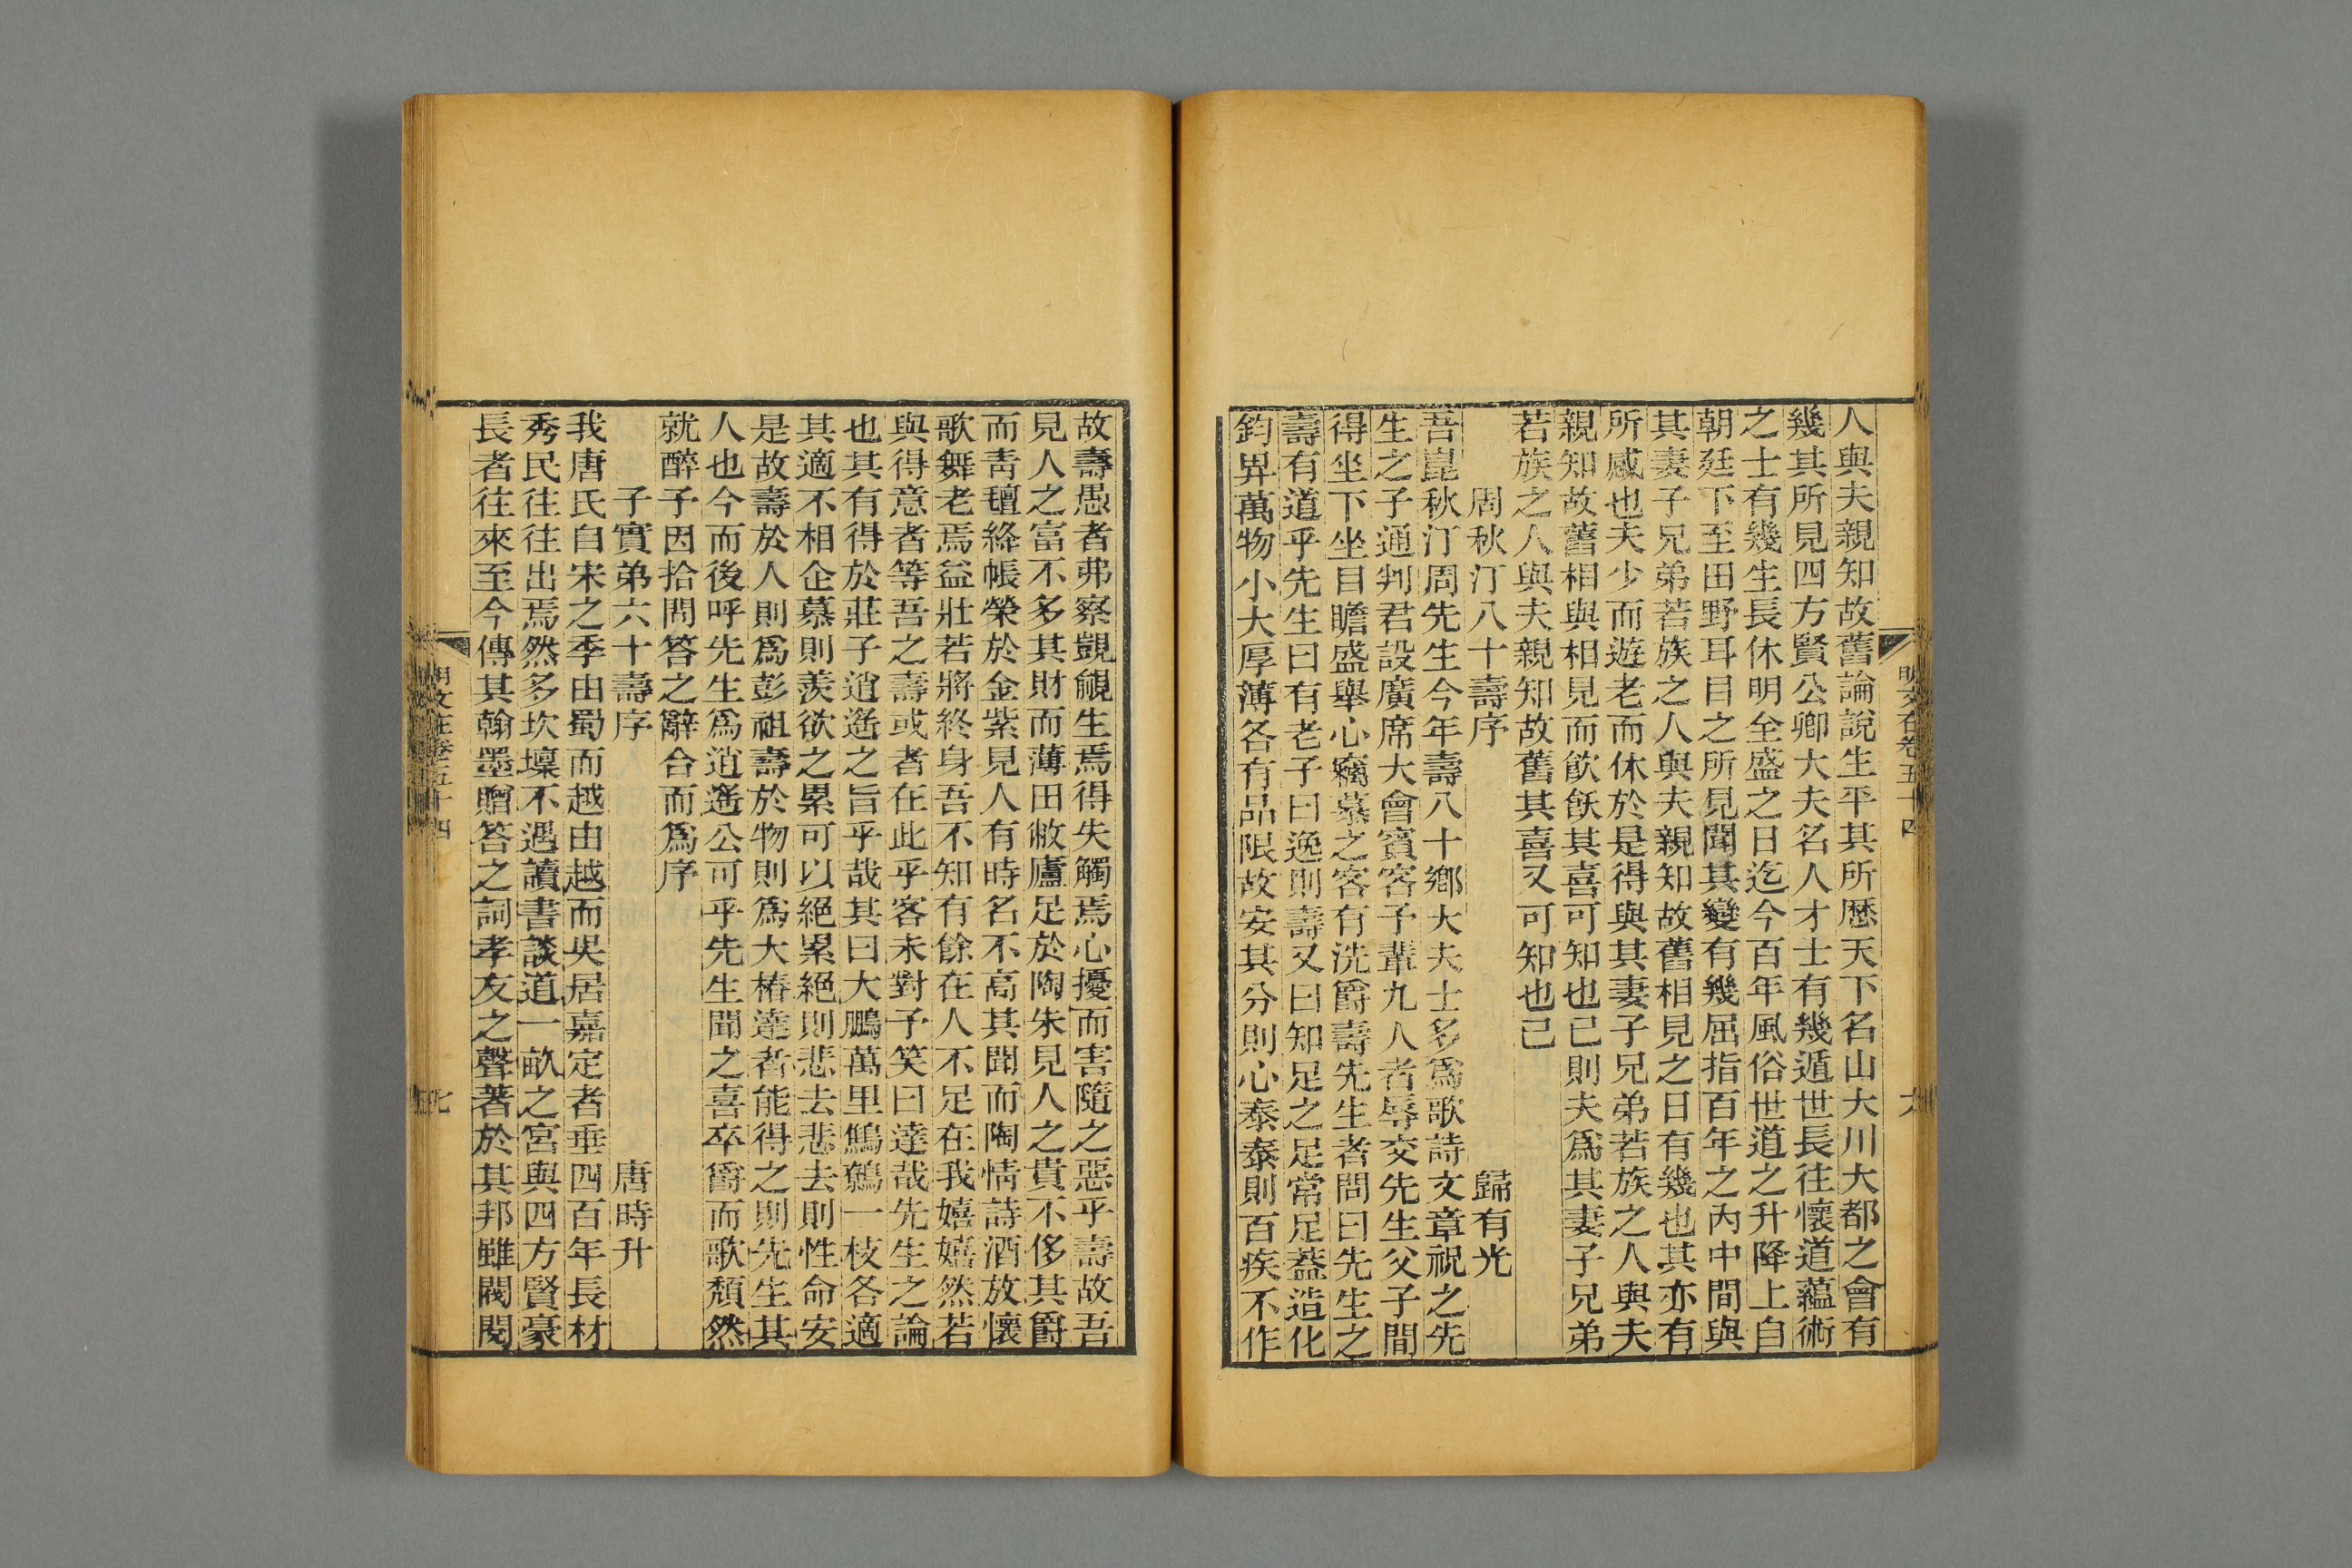 人與夫親知故舊論說生平其所歷天下名山大川大都之會有
幾其所見四方賢公卿大夫名人才士有幾遁世長往懷道蘊術
之士有幾生長休明全盛之日迄今百年風俗世道之升降上自
朝廷下至田野耳目之所見聞其變有幾屈指百年之內中間與
其妻子兄弟若族之人與夫親知故舊相見之日有幾也其亦有
所感也夫少而遊老而休於是得與其妻子兄弟若族之人與夫
親知故舊相與相見而飲飫其喜可知也已則夫爲其妻子兄弟
若族之人與夫親知故舊其喜又可知也已
周秋汀八十壽序 歸有光
吾崑秋汀周先生今年壽八十鄉大夫士多爲歌詩文章祝之先
生之子通判君設廣席大會賓客予輩九人者辱交先生父子間
得坐下坐目瞻盛舉心竊慕之客有洗爵壽先生者問曰先生之
壽有道乎先生曰有老子曰逸則壽又曰知足之足常足蓋造化
鈞畀萬物小大厚薄各有品限故安其分則心泰泰則百疾不作
故壽愚者弗察覬覦生焉得失觸焉心擾而害隨之惡乎壽故吾
見人之富不多其財而薄田敝廬足於陶朱見人之貴不侈其爵
而青氊絳帳榮於金紫見人有時名不高其聞而陶情詩酒放懷
歌舞老焉益壯若將終身吾不知有餘在人不足在我嬉嬉然若
與得意者等吾之壽或者在此乎客未對予笑曰達哉先生之論
也其有得於莊子逍遙之旨乎哉其曰大鵬萬里鷦鷯一枝各適
其適不相企慕則羨欲之累可以絕累絕則悲去悲去則性命安
是故壽於人則爲彭祖壽於物則爲大椿達者能得之則先生其
人也今而後呼先生爲逍遙公可乎先生聞之喜卒爵而歌頹然
就醉予因拾問答之辭合而爲序
子實弟六十壽序 唐時升
我唐氏自宋之季由蜀而越由越而吳居嘉定者垂四百年長材
秀民往往出焉然多坎壈不遇讀書談道一畝之宮與四方賢豪
長者往來至今傳其翰墨贈答之詞孝友之聲著於其邦雖閥閱
明文在卷五十四
七